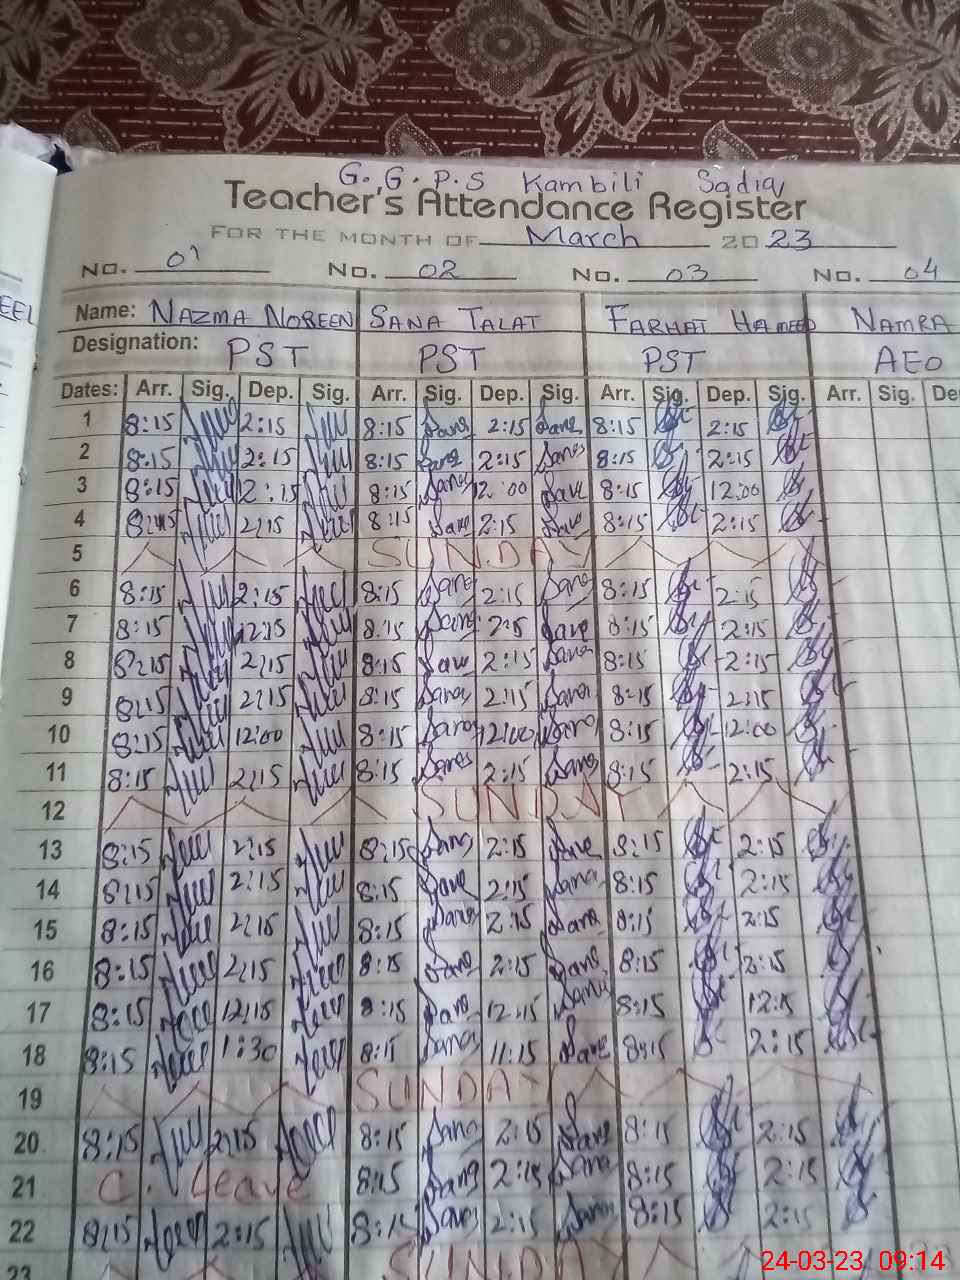 G. G. P. S Kambili Sadiq
Teacher's Attendance Register
FOR THE MONTH OF March 2023
No. 01 No. 02 No. 03 No. 04
EEL
Name: NAZMA NOREEN SANA TALAT FARHAT HAMEED NAMRA
Designation: PST PST PST AEO
Dates: Arr. Sig. Dep. Sig. Arr. Sig. Dep. Sig. Arr. Sig. Dep. Sig. Arr. Sig. De
1 8:15 2:15 8:15 Sana 2:15 Sana 8:15 2:15
2 8:15 2:15 8:15 Sana 2:15 Sana 8:15 2:15
3 8:15 8:15 Sana 12:00 Sana 8:15 12:00
4 8:15 2:15 8:15 Sana 2:15 Sana 8:15 2:15
5 SUNDAY
6 8:15 2:15 8:15 Sana 2:15 Sana 8:15 2:15
7 8:15 8:15 Sana Sana 8:15 2:15
8 8:15 2:15 8:15 Sana 2:15 Sana 8:15 2:15
9 8:15 2:15 8:15 Sana 2:15 Sana 8:15 2:15
10 8:15 12:00 8:15 Sana 12:00 Sana 8:15 12:00
11 8:15 2:15 8:15 Sana 2:15 Sana 8:15 2:15
12 SUNDAY
13 8:15 2:15 8:15 Sana 2:15 Sana 8:15 2:15
14 8:15 2:15 8:15 Sana 2:15 Sana 8:15 2:15
15 8:15 2:15 8:15 Sana 2:15 Sana 8:15 2:15
16 8:15 2:15 8:15 Sana 2:15 Sana 8:15 2:15
17 8:15 12:15 8:15 Sana 12:15 Sana 8:15 12:15
18 8:15 1:30 8:15 Sana 11:15 Sana 8:15 2:15
19 SUNDAY
20 8:15 2:15 8:15 Sana 2:15 Sana 8:15 2:15
21 C. Leave 8:15 Sana 2:15 Sana 8:15 2:15
22 8:15 2:15 8:15 Sana 2:15 Sana 8:15 2:15
23 SUNDAY
24-03-23 09:14